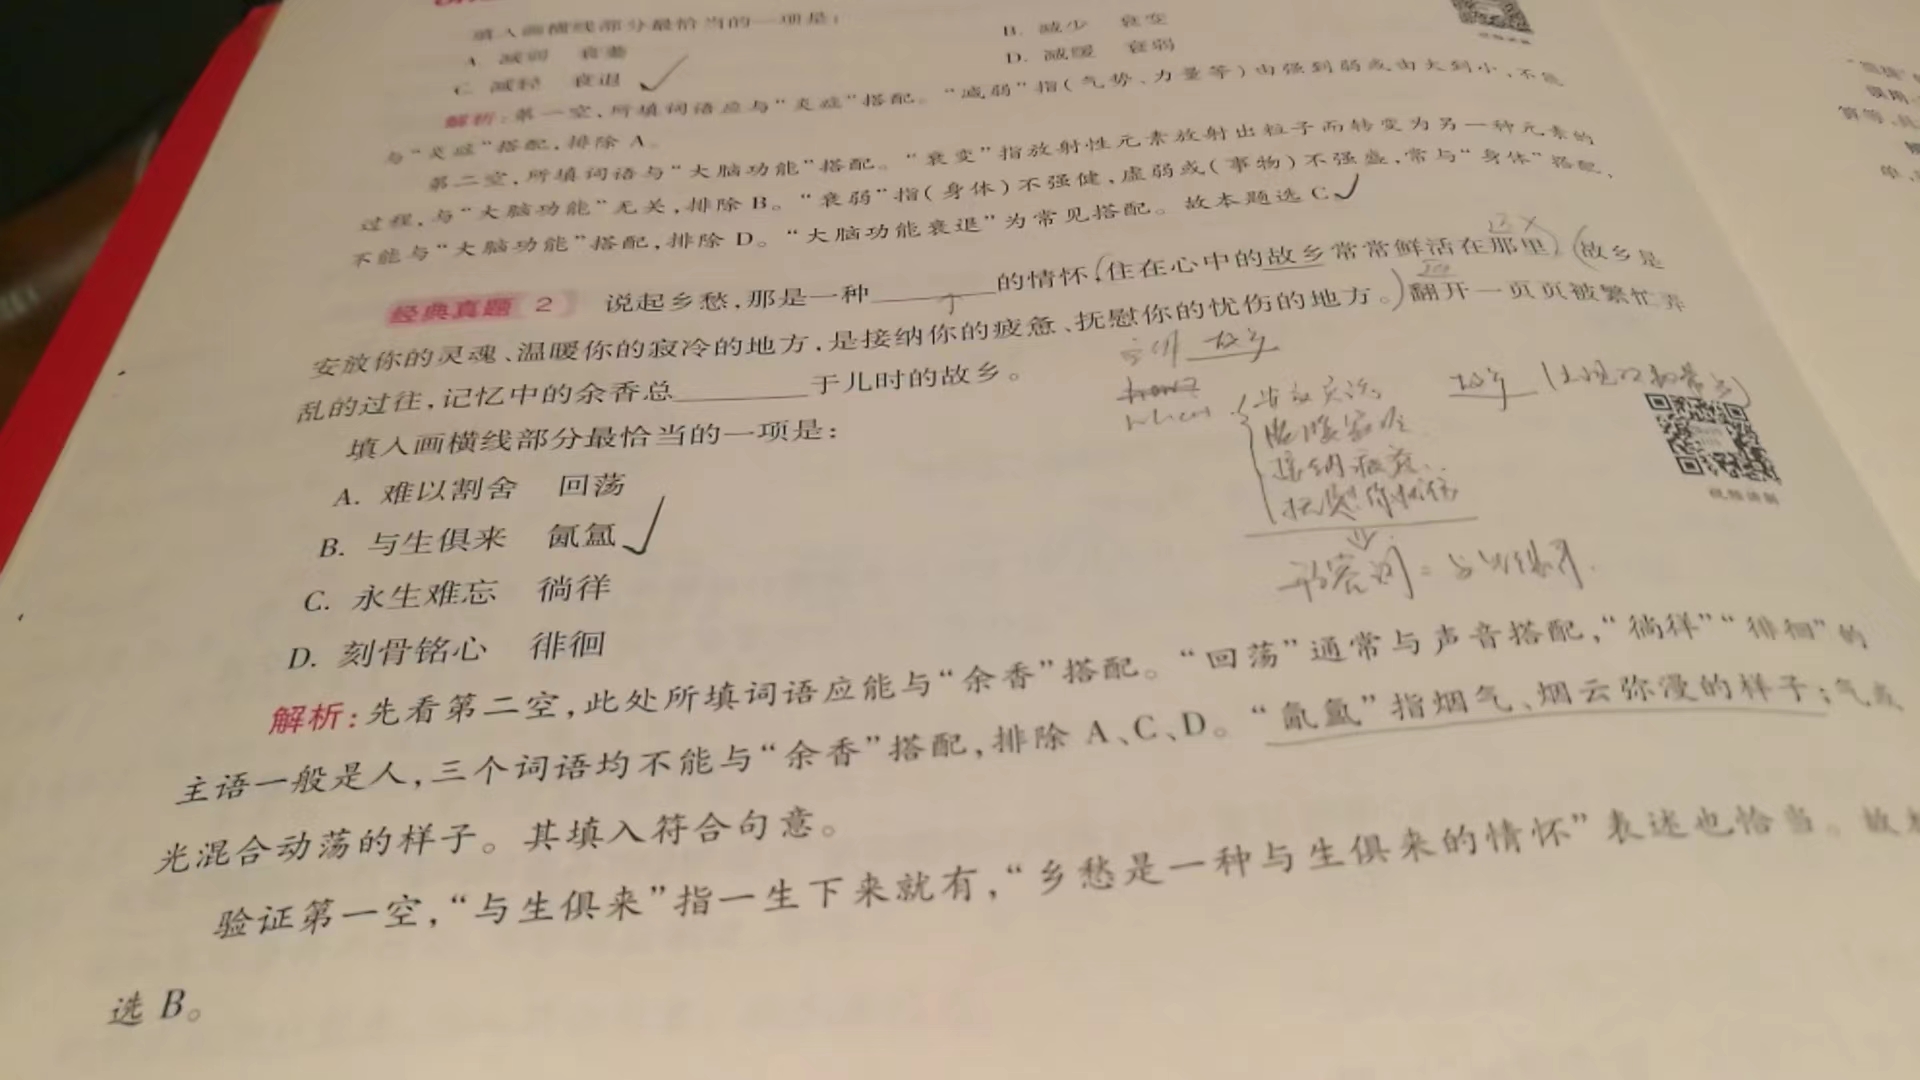 填入画横线部分最恰当的一项是:
A. 减弱 衰萎
B. 减少 衰变
C. 减轻 衰退
D. 减缓 衰弱
解析:第一空,所填词语应与“炎症”搭配。“减弱”指(气势、力量等)由强到弱或由大到小,不能
与“炎症”搭配,排除 A。
第二空,所填词语与“大脑功能”搭配。“衰变”指放射性元素放射出粒子而转变为另一种元素的
过程,与“大脑功能”无关,排除 B。“衰弱”指(身体)不强健,虚弱或(事物)不强盛,常与“身体”搭配,
不能与“大脑功能”搭配,排除 D。“大脑功能衰退”为常见搭配。故本题选 C
经典真题 2 说起乡愁,那是一种______的情怀,住在心中的故乡常常鲜活在那里。故乡是
安放你的灵魂、温暖你的寂冷的地方,是接纳你的疲惫、抚慰你的忧伤的地方。翻开一页页被繁忙弄
乱的过往,记忆中的余香总______于儿时的故乡。
填入画横线部分最恰当的一项是:
A. 难以割舍 回荡
B. 与生俱来 氤氲
C. 永生难忘 徜徉
D. 刻骨铭心 徘徊
故乡
故乡
解析:先看第二空,此处所填词语应能与“余香”搭配。“回荡”通常与声音搭配,“徜徉”“徘徊”的
主语一般是人,三个词语均不能与“余香”搭配,排除 A、C、D。“氤氲”指烟气、烟云弥漫的样子;气或
光混合动荡的样子。其填入符合句意。
验证第一空,“与生俱来”指一生下来就有,“乡愁是一种与生俱来的情怀”表述也恰当。故本
选 B。